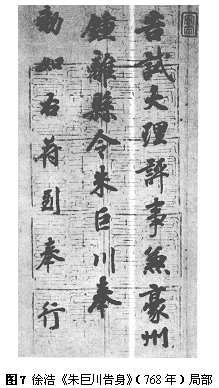 告試大理評事兼豪州
鍾離縣令朱巨川奉
勅如右符到奉行
图7 徐浩《朱巨川告身》（768年）局部